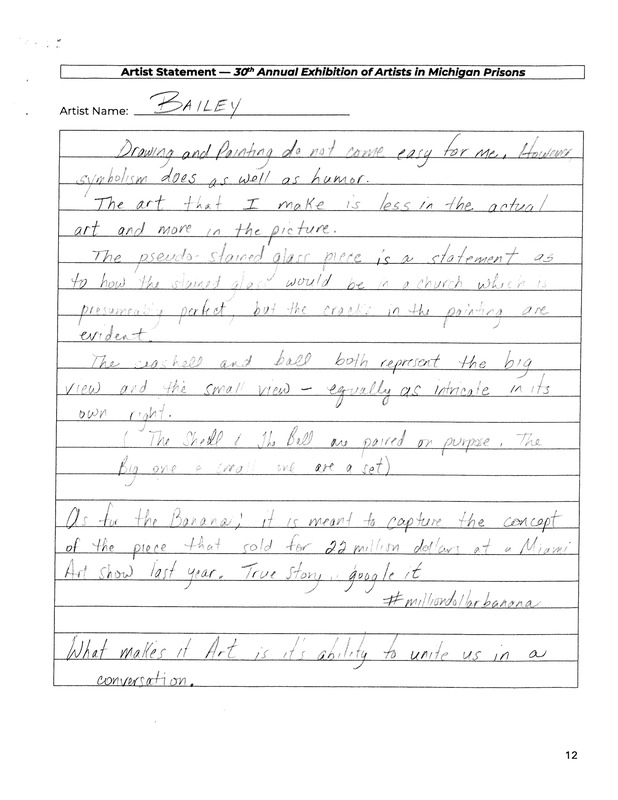 Artist Statement — 30th Annual Exhibition of Artists in Michigan Prisons
Artist Name: BAILEY
Drawing and Painting do not come easy for me. However
symbolism does as well as humor.
The art that I make is less in the actual
art and more in the picture.
The pseudo-stained glass piece is a statement as
to how the stained glass would be in a church which is
presumably perfect, but the cracks in the painting are
evident.
The seashell and ball both represent the big
view and the small view – equally as intricate in its
own right.
( The Shell / The Ball are paired on purpose. The
Big one & small one are a set)
As for the Banana; it is meant to capture the concept
of the piece that sold for 22 million dollars at a Miami
Art show last year. True Story.. google it
#milliondollarbanana
What makes it Art is it's ability to unite us in a
conversation.
12